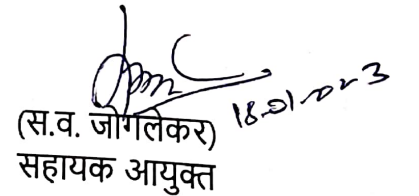 18.01.2023
(स.व. जोगलेकर)
सहायक आयुक्त